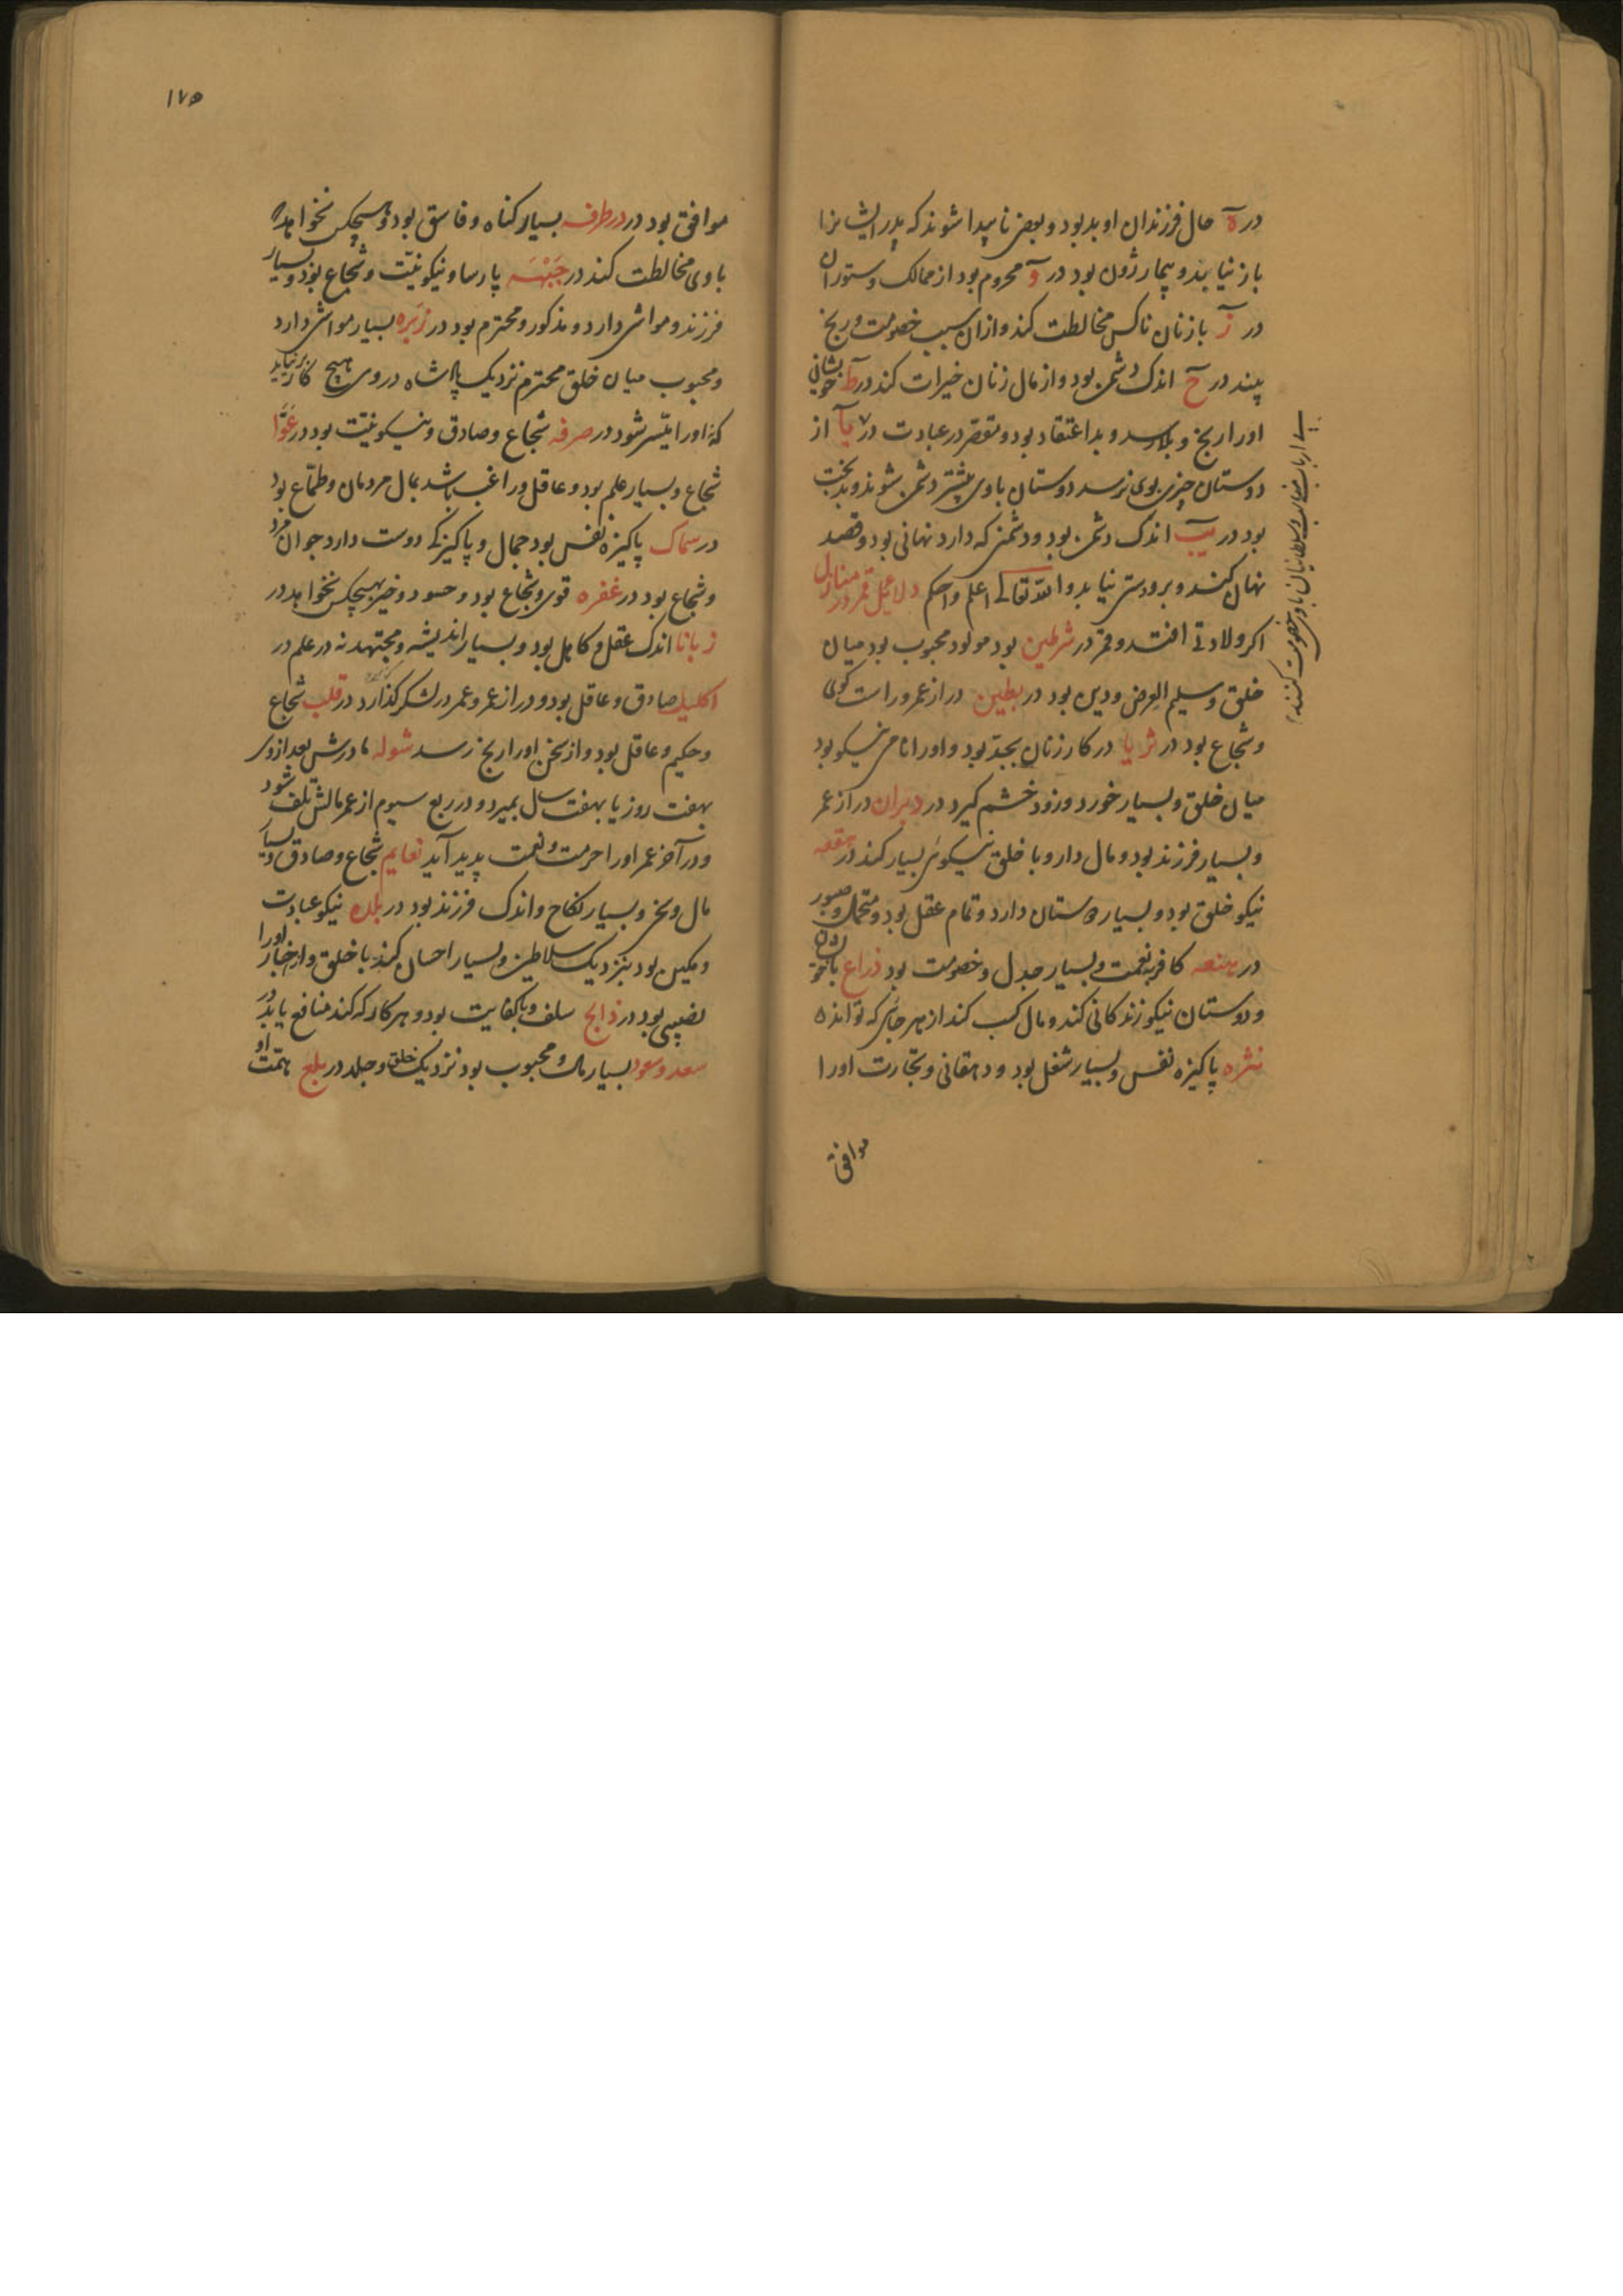 در ه حال فرزندان او بد بود و بعضی ناپیدا شوند که پدر ایشانرا
باز نیابد و بیمار زون بود در و محروم بود از ممالک و ستوران
در ز با زنان ناکس مخالطت کند و ازان سبب خصومت و رنج
بیند در ح اندک دشمن بود و از مال زنان خیرات کند در ط خویشانی
اورا رنج و بلا رسد و بد اعتقاد بود و مقصر در عبادت در یا از
دوستان چیزی بوی نرسد دوستان باوی بیشتر دشمن شوند و بدبخت
بود در یب اندک دشمن بود و دشمنی که دارد نهانی بود و قصد
نهان کنند و برو دستی نیابد والله تعالی اعلم و احکم دلایل قمر در منازل
اکر ولادتی افتد و قمر در شرطین بود مولود محبوب بود میان
خلق و سلیم العرض و دین بود در بطین دراز عمر و راست کوی
و شجاع بود در ثریا در کار زنان بجد بود و اورا نامی نیکو بود
میان خلق و بسیار خورد و زود خشم کیرد در دبران دراز عمر
و بسیار فرزند بود و مال دار و با خلق نیکوئی بسیار کند در هقعه
نیکو خلق بود و بسیار دوستان دارد و تمام عقل بود و متحمل و صبور
در هنعه کافر نعمت و بسیار جدل و خصومت بود ذراع با خویشان
و دوستان نیکو زندکانی کند و مال کسب کند از هر جائی که تواند
نثره پاکیزه نفس و بسیار شغل بود و دهقانی و تجارت اورا
موافق
ارباب و سلطانیان باوی خصومت کنند
۱۷۵
موافق بود در در طرفه بسیار کناه و فاسق بود و هیچکس نخواهد که
باوی مخالطت کند در جبهه پارسا و نیکو نیت و شجاع بود و بسیار
فرزند و مواشی دارد و مذکور و محترم بود در زبره بسیار مواشی دارد
و محبوب میان خلق محترم نزدیک پادشاه در وی هیچ کار نیاید
که اورا میسر شود در صرفه شجاع و صادق و نیکو نیت بود در عوا
شجاع و بسیار علم بود و عاقل و راغب باشد بمال مردمان و طماع بود
در سماک پاکیزه نفس بود جمال و پاکیزکی دوست دارد جوان مرد
و شجاع بود در غفره قوی و شجاع بود و حسود و خیر بهیچکس نخواهد در
زبانا اندک عقل و کاهل بود و بسیار اندیشه و مجتهد نه در علم در
اکلیل صادق و عاقل بود و دراز عمر و عمر در لشکر کذارد در قلب شجاع
و حکیم و عاقل بود و از سخن اورا رنج رسد شوله مادرش بعد از وی
بهفت روز یا بهفت سال بمیرد و در ربع سیوم از عمر مالش تلف شود
و در آخر عمر اورا حرمت و نعمت پدید آید نعایم شجاع و صادق و بسیار
مال و سخی و بسیار نکاح و اندک فرزند بود در بلده نیکو عبادت
و مکین بود بنزدیک سلاطین و بسیار احسان کند با خلق و از اخبار اورا
نصیبی بود در ذابح سلف و با کفایت بود و هر کار که کند منافع یابد در
سعد وسعود بسیار مال و محبوب بود نزدیک خلق و جلد در بلع همت او